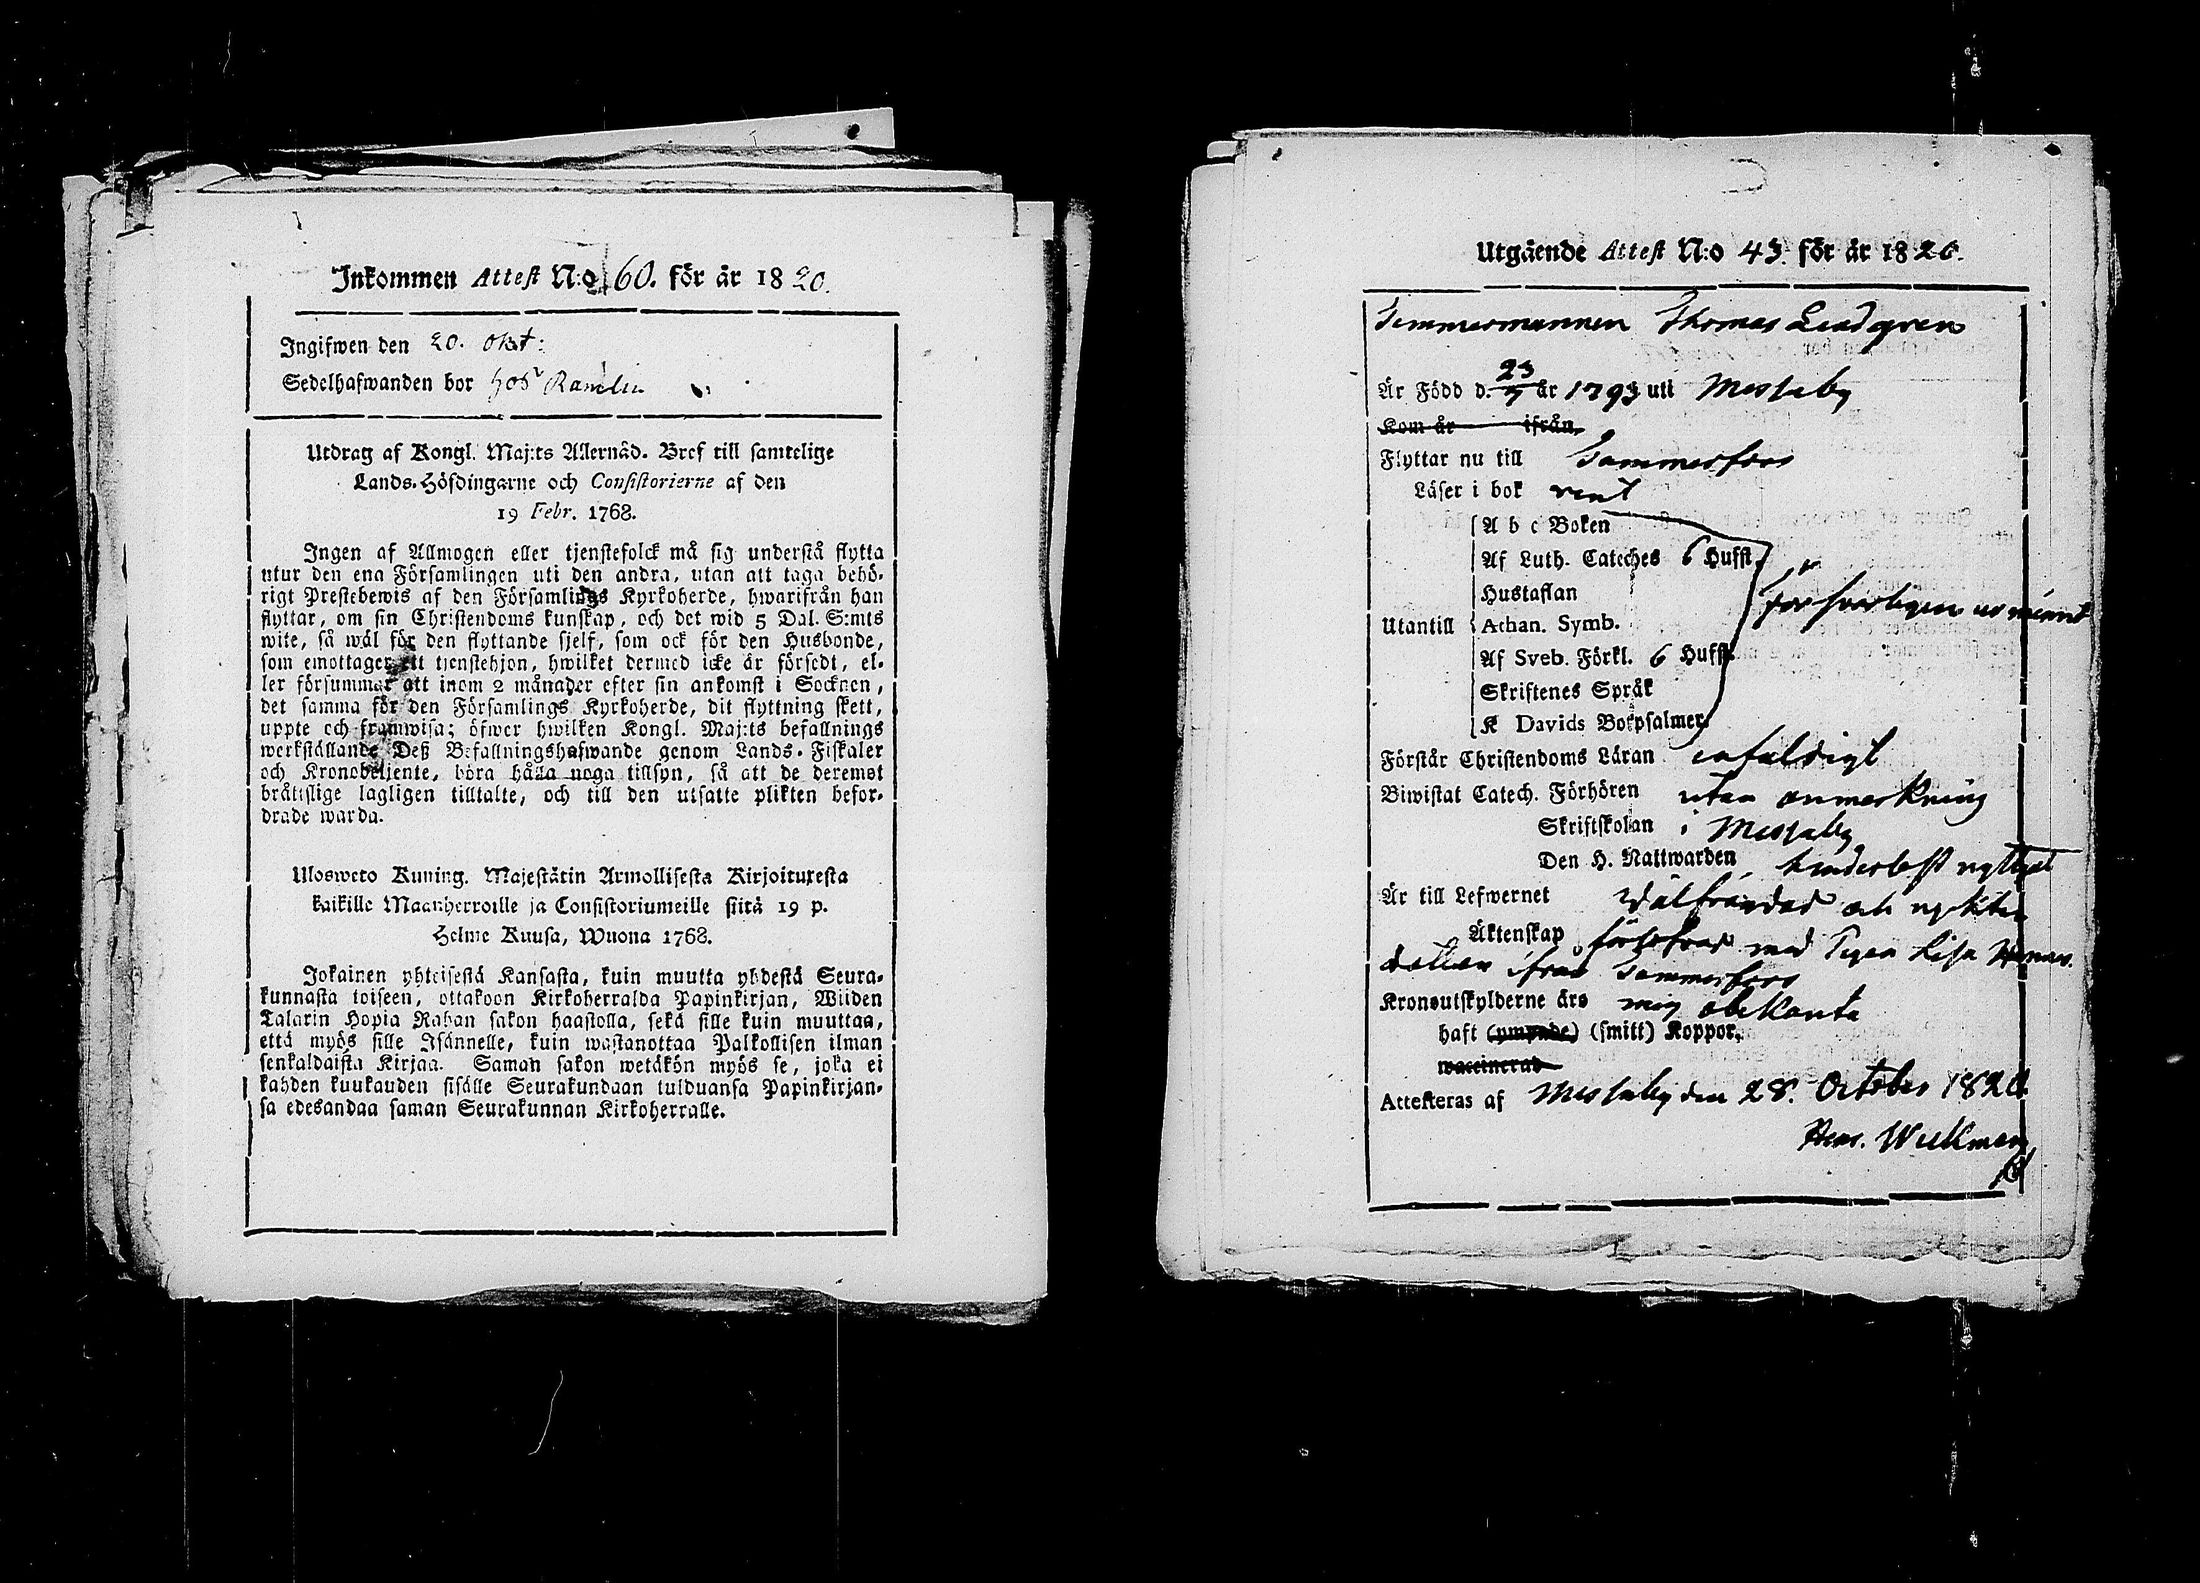 Inkommen Attest N:o 60. för år 1820.
Ingifwen den 20. Okt:
Sedelhafwanden bor hos Ramlin
Utdrag af Kongl. Maj:ts Allernåd. Bref till samtelige
Lands-Höfdingarne och Consistorierne af den
19 Febr. 1768.
Ingen af Allmogen eller tjenstefolck må sig understå flytta
utur den ena Församlingen uti den andra, utan att taga behö-
rigt Prestebewis af den Församlings Kyrkoherde, hwarifrån han
flyttar, om sin Christendoms kunskap, och det wid 5 Dal. S:mts
wite, så wäl för den flyttande sjelf, som ock för den Husbonde,
som emottager ett tjenstehjon, hwilket dermed icke är försedt, el-
ler försummar att inom 2 månader efter sin ankomst i Socknen,
det samma för den Församlings Kyrkoherde, dit flyttning skett,
uppte och framwisa; öfwer hwilken Kongl. Maj:ts befallnings
werkställande Deß Befallningshafwande genom Lands-Fiskaler
och Kronobetjente, böra hålla noga tillsyn, så att de deremot
bråttslige lagligen tilltalte, och till den utsatte plikten befor-
drade warda.
Ulosweto Kuning. Majestätin Armollisesta Kirjoituxesta
kaikille Maanherroille ja Consistoriumeille siitä 19 p.
Helme Kuusa, Wuona 1768.
Jokainen yhteisestä Kansasta, kuin muutta yhdestä Seura-
kunnasta toiseen, ottakoon Kirkoherralda Papinkirjan, Wiiden
Talarin Hopia Rahan sakon haastolla, sekä sille kuin muuttaa,
että myös sille Isännelle, kuin wastanottaa Palkollisen ilman
senkaldaista Kirjaa. Saman sakon wetäkön myös se, joka ei
kahden kuukauden sisälle Seurakundaan tulduansa Papinkirjan-
sa edesandaa saman Seurakunnan Kirkoherralle.
Utgående Attest N:o 43. för år 1820.
Timmermannen Thomas Lindgren
Är Född d. 23/7 år 1793 uti Messuby
Kom år ifrån
Flyttar nu till Tammerfors
Läser i bok rent
Utantill
A b c Boken
Af Luth. Cateches 6 Hufst.
Hustaflan
Athan. Symb.
Af Sveb. Förkl. 6 Hufst.
Skriftenes Språk
K Davids Botpsalmer
försvarligen
Förstår Christendoms Läran enfaldigt
Biwistat Catech. Förhören utan anmerkning
Skriftskolan i Messuby
Den H. Nattwarden hinderlöst nyttjat
Är till Lefwernet wälfrändad och nykter
Äktenskap förlofvad med Pigan Lisa
dotter ifrån Tammerfors
Kronoutskylderne äro mig obekanta
haft (ympade) (smitt) Koppor.
waccinerad
Attesteras af Messuby den 28. October 1820
Henr. Wellman